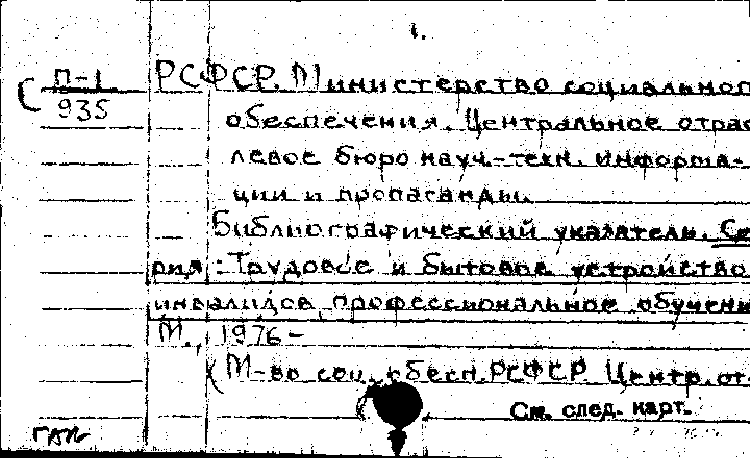 1.
П-1
935
РСФСР. Министерство социальног
обеспечения. Центральное отрас
левое бюро науч.-техн. информа-
ции и пропаганды.
Библиографический указатель. Се
рия: Трудовое и бытовое устройство
инвалидов, профессиональное обучени
М., 1976-
(М-во соц. обесп. РСФСР. Центр. от
См. след. карт.